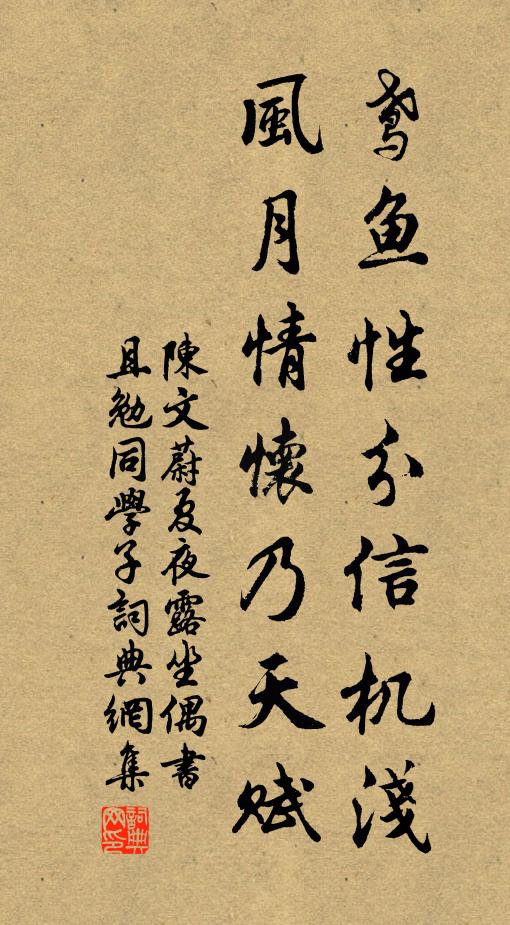 鸢鱼性分信机淺
風月情懷乃天赋
陳文蔚夏夜露坐偶書
且勉同學子詞典網集
詞典网印